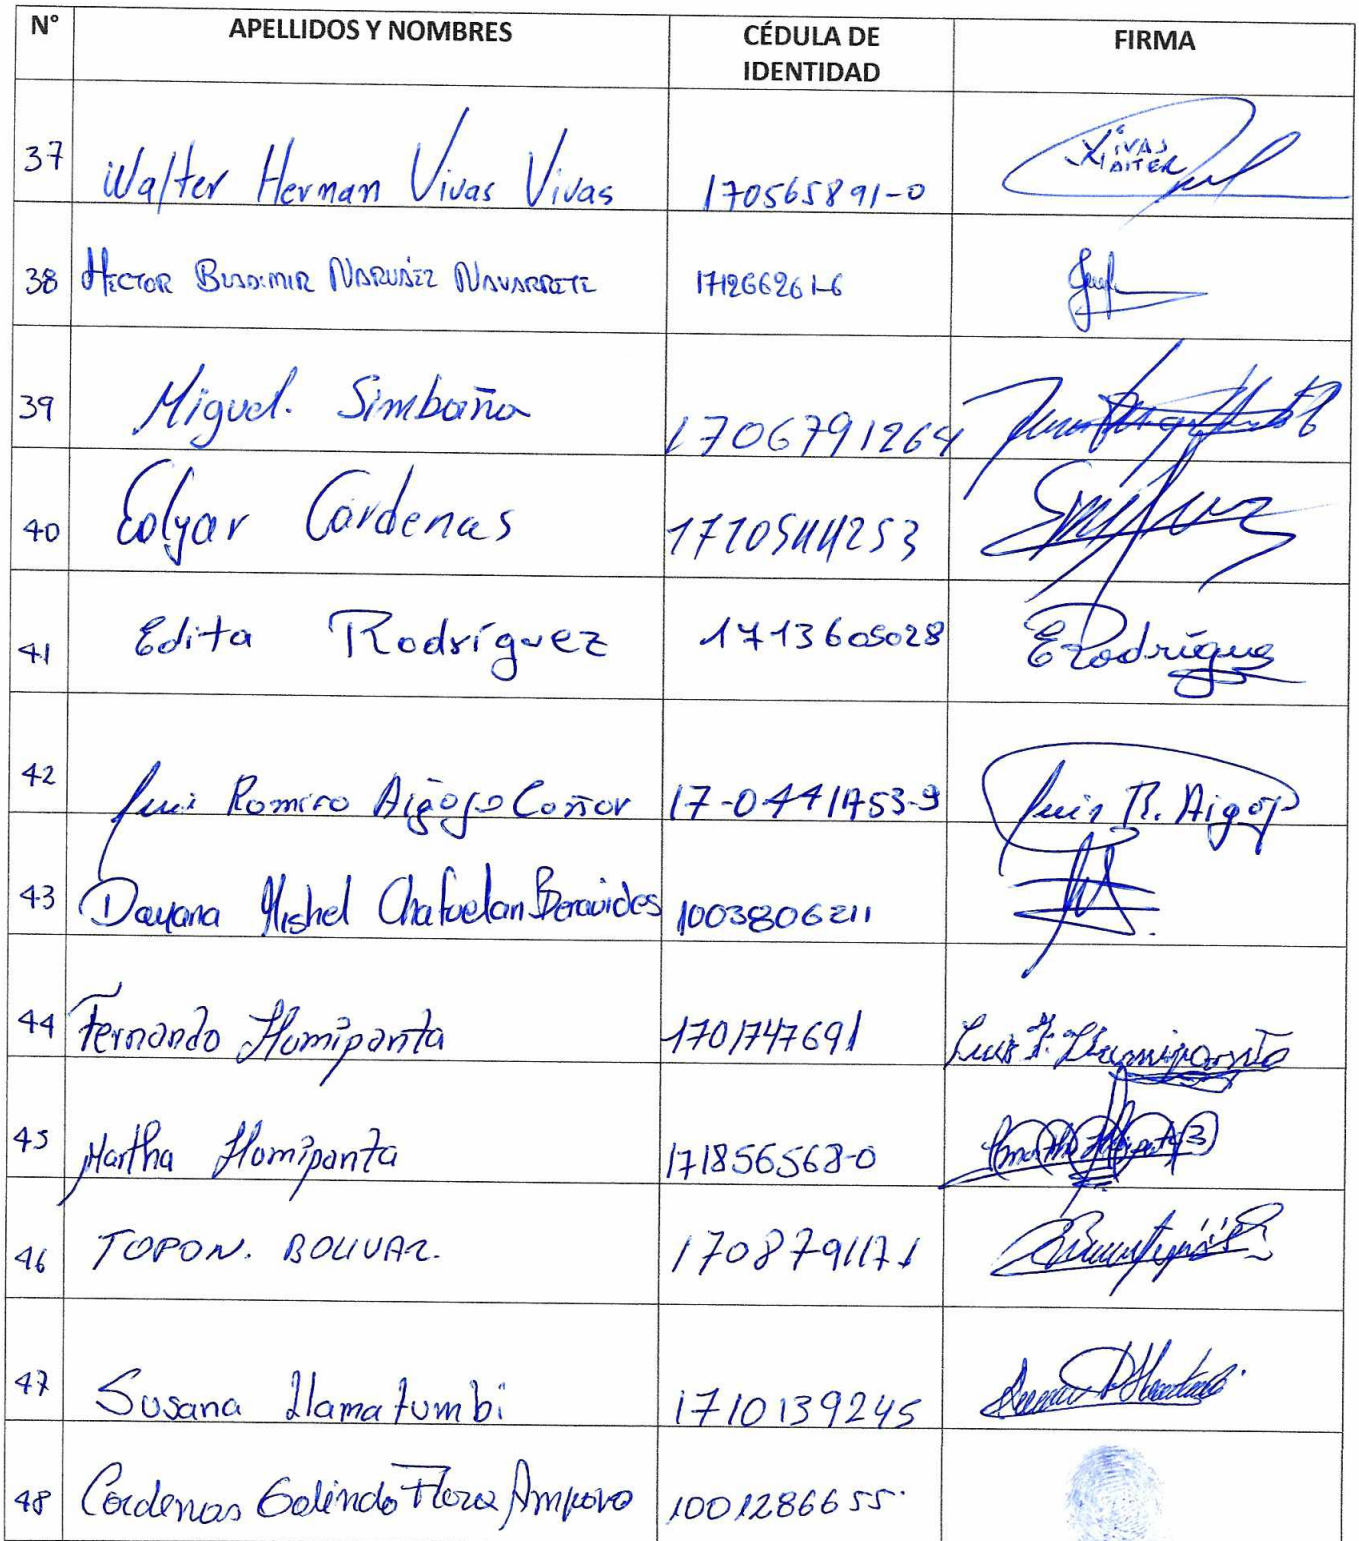 N° APELLIDOS Y NOMBRES CÉDULA DE IDENTIDAD FIRMA
37 Walter Herman Vivas Vivas 170565891-0 VIVAS WALTER
38 HECTOR BLADIMIR NARVAEZ NAVARRETE 171266261-6
39 Miguel. Simbaña 1706791264
40 Edgar Cardenas
41 Edita Rodríguez 1713605028 E Rodríguez
42 Luis Romiro Aigaje Coñor 17-0441753-9 Luis R. Aigaj
43 Dayana Mishel Chafuelan Benavides 1003806211
44 Fernando Llamipanta 1701747691 Luis F. Llamipanta
45 Martha Llamipanta 171856568-0
46 TOPON. BOLIVAR. 1708791171
47 Susana Llamatumbi 1710139245
48 Cardenas Galindo Flora Amparo 1001286655.